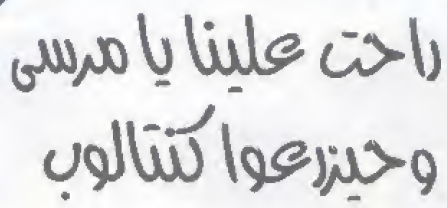 راحت علينا يا مرسى
وحيزرعوا كنتالوب